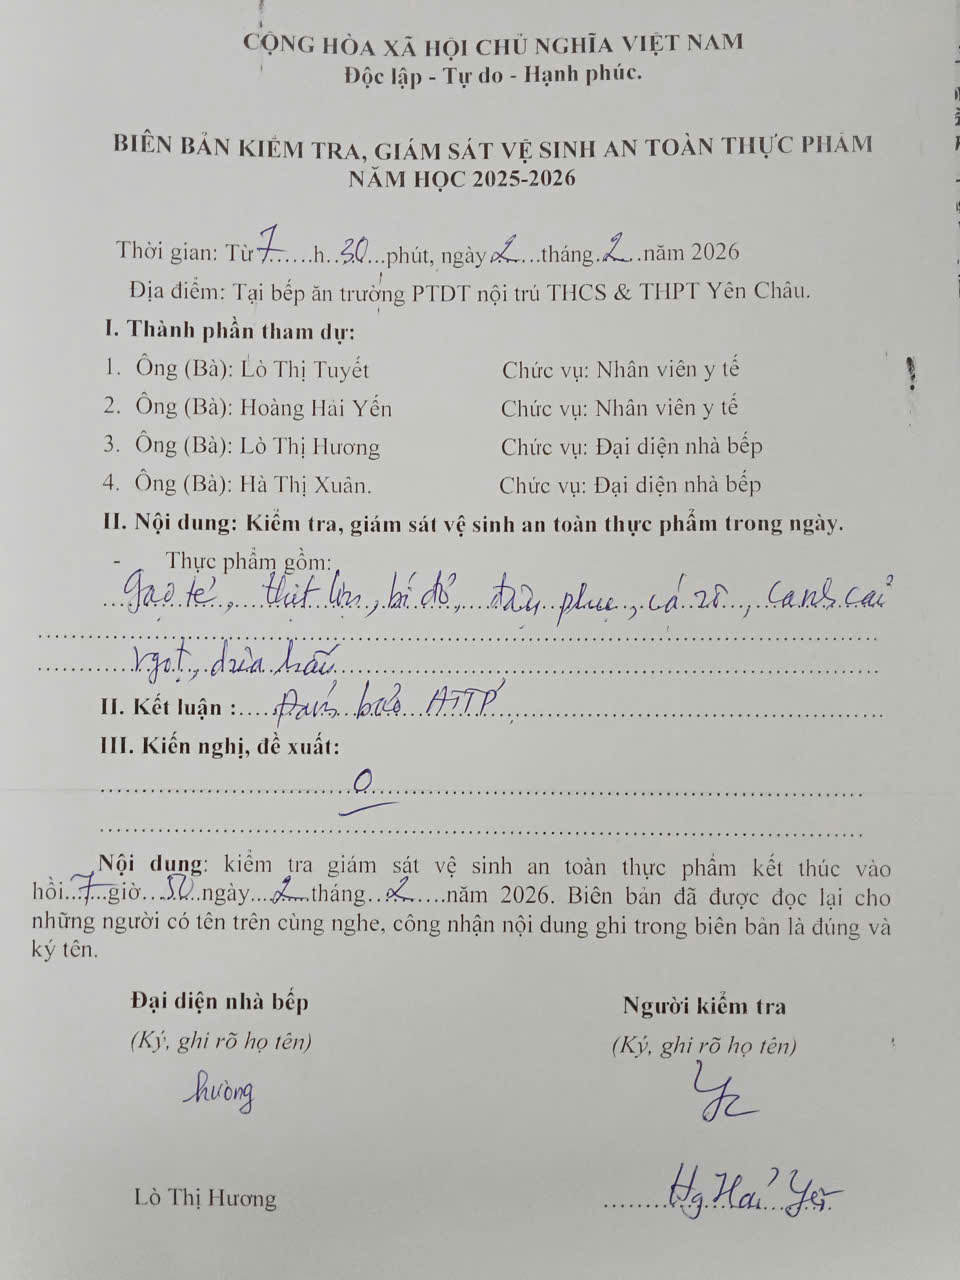 CỘNG HÒA XÃ HỘI CHỦ NGHĨA VIỆT NAM
Độc lập - Tự do - Hạnh phúc.
BIÊN BẢN KIỂM TRA, GIÁM SÁT VỆ SINH AN TOÀN THỰC PHẨM
NĂM HỌC 2025-2026
Thời gian: Từ 7......h..30...phút, ngày 2...tháng.2..năm 2026
Địa điểm: Tại bếp ăn trường PTDT nội trú THCS & THPT Yên Châu.
I. Thành phần tham dự:
1. Ông (Bà): Lò Thị Tuyết Chức vụ: Nhân viên y tế
2. Ông (Bà): Hoàng Hải Yến Chức vụ: Nhân viên y tế
3. Ông (Bà): Lò Thị Hương Chức vụ: Đại diện nhà bếp
4. Ông (Bà): Hà Thị Xuân. Chức vụ: Đại diện nhà bếp
II. Nội dung: Kiểm tra, giám sát vệ sinh an toàn thực phẩm trong ngày.
- Thực phẩm gồm:
gạo tẻ, thịt lợn, bí đỏ, đậu phụ, cá rô, canh cải
ngọt, dưa hấu
II. Kết luận :....Đảm bảo ATTP
III. Kiến nghị, đề xuất:
0
Nội dung: kiểm tra giám sát vệ sinh an toàn thực phẩm kết thúc vào
hồi..7..giờ..50.ngày...2..tháng..2....năm 2026. Biên bản đã được đọc lại cho
những người có tên trên cùng nghe, công nhận nội dung ghi trong biên bản là đúng và
ký tên.
Đại diện nhà bếp Người kiểm tra
(Ký, ghi rõ họ tên) (Ký, ghi rõ họ tên)
hương
Lò Thị Hương Hg Hải Yến